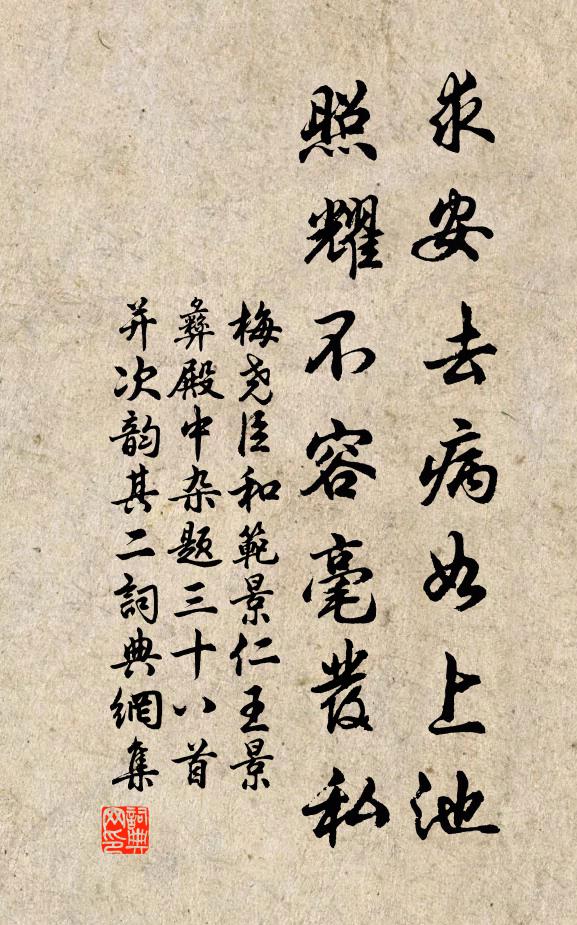 求安去病如上池
照耀不容毫發私
梅尧臣和範景仁王景
彝殿中杂题三十八首
并次韵其二詞典網集
詞典
网印